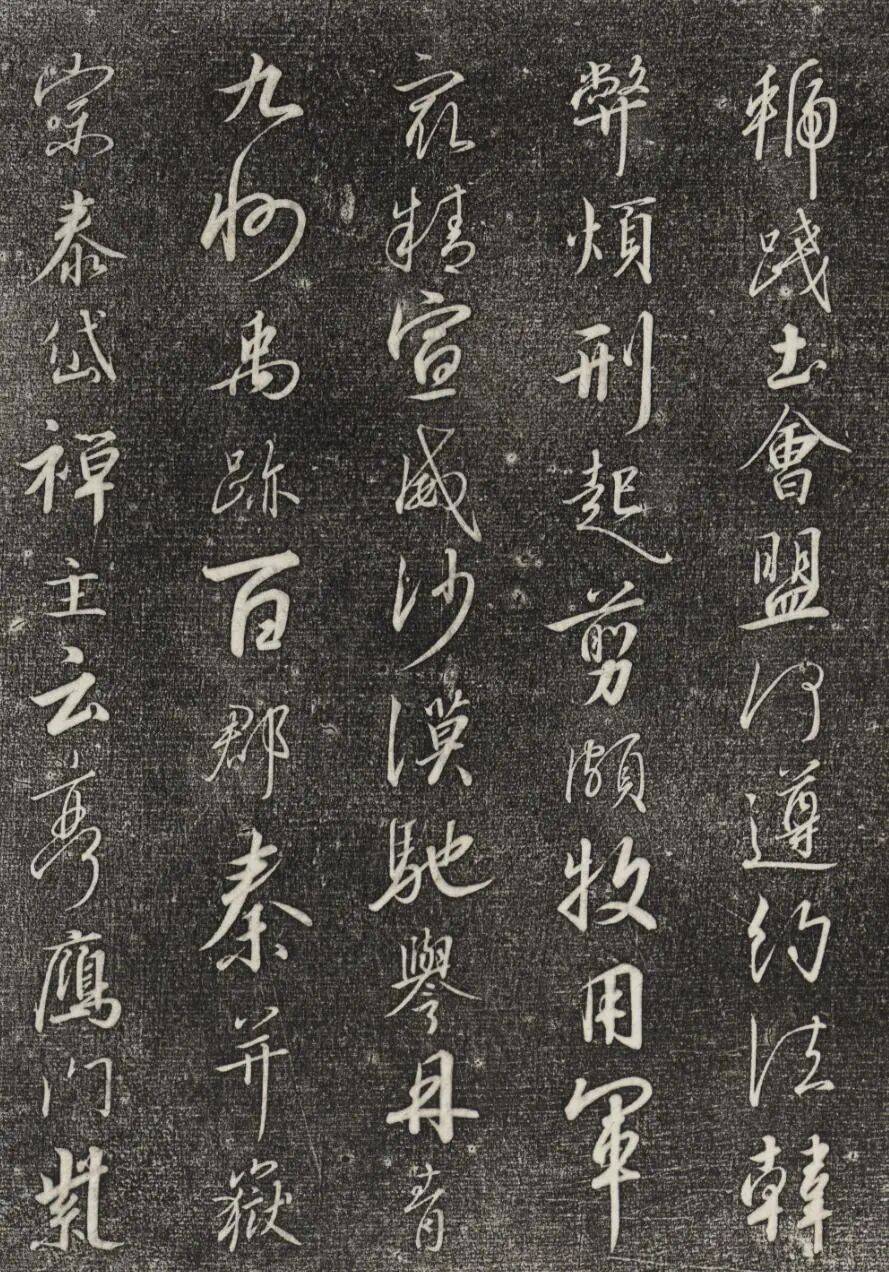 虢踐土會盟何遵約法韓
弊煩刑起剪頗牧用軍
冣精宣威沙漠馳譽丹青
九州禹跡百郡秦并嶽
宗泰岱禪主云亭鴈門紫